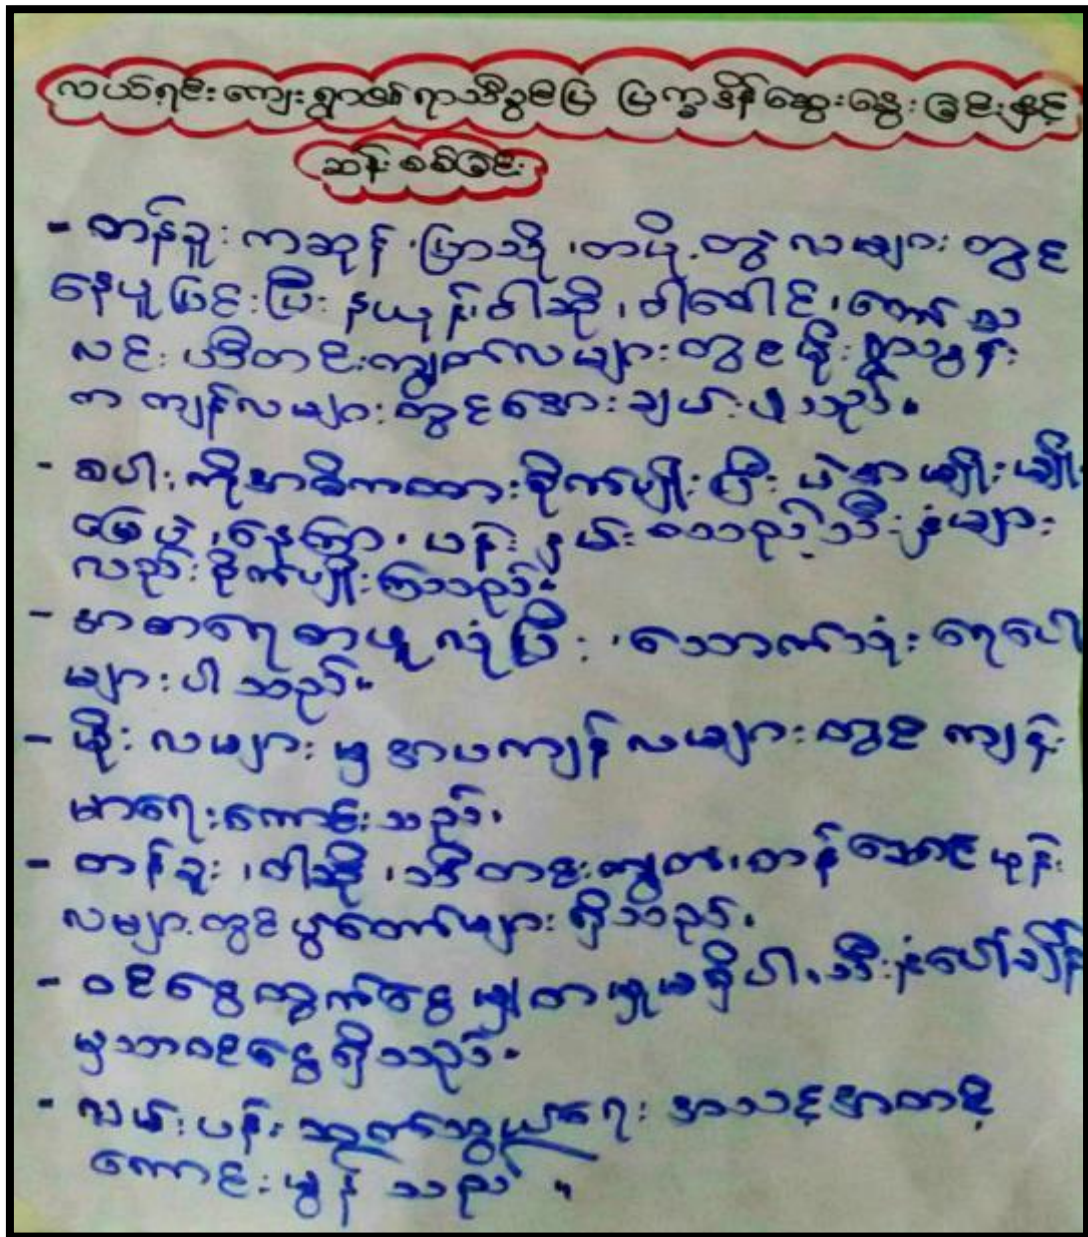 လယ်ရင်းကျေးရွာ၏ ရာသီဥတုပြ ပြက္ခဒိန်ဆွေးနွေးခြင်းနှင့်
ဆန်းစစ်ခြင်း
- တန်ခူး ကဆုန် ၊ပြာသို ၊တပို့တွဲ လများ တွင်
နေပူပြင်းပြီး နယုန်၊ဝါဆို ၊ဝါခေါင် ၊တော်သ
လင်း သီတင်းကျွတ်လများတွင် မိုးရွာသွန်း
က ကျန်လများတွင် အေးချမ်းပါသည်။
- စပါးကိုအဓိကထားစိုက်ပျိုးပြီး ပဲအမျိုးမျိုး
မြေပဲ ၊နေကြာ ၊ပန်းနှမ်း စသည့်သီးနှံများ
လည်းစိုက်ပျိုးကြသည်။
- အစာရေစာဖူလုံပြီး ၊သောက်သုံးရေပေါ
များပါသည်။
- မိုးလများမှအပကျန်လများတွင် ကျန်း
မာရေးကောင်းသည်။
- တန်ခူး ၊ဝါဆို ၊သီတင်းကျွတ်၊တန်ဆောင်မုန်း
လများတွင်ပွဲတော်များ ရှိသည်။
- ဝင်ငွေထွက်ငွေ မျှတမှုမရှိပါ၊သီးနှံပေါ်ချိန်
မှသာဝင်ငွေရှိသည်။
- လမ်းပန်းဆက်သွယ်ရေး အသင့်အတင့်
ကောင်းမွန်သည် ။